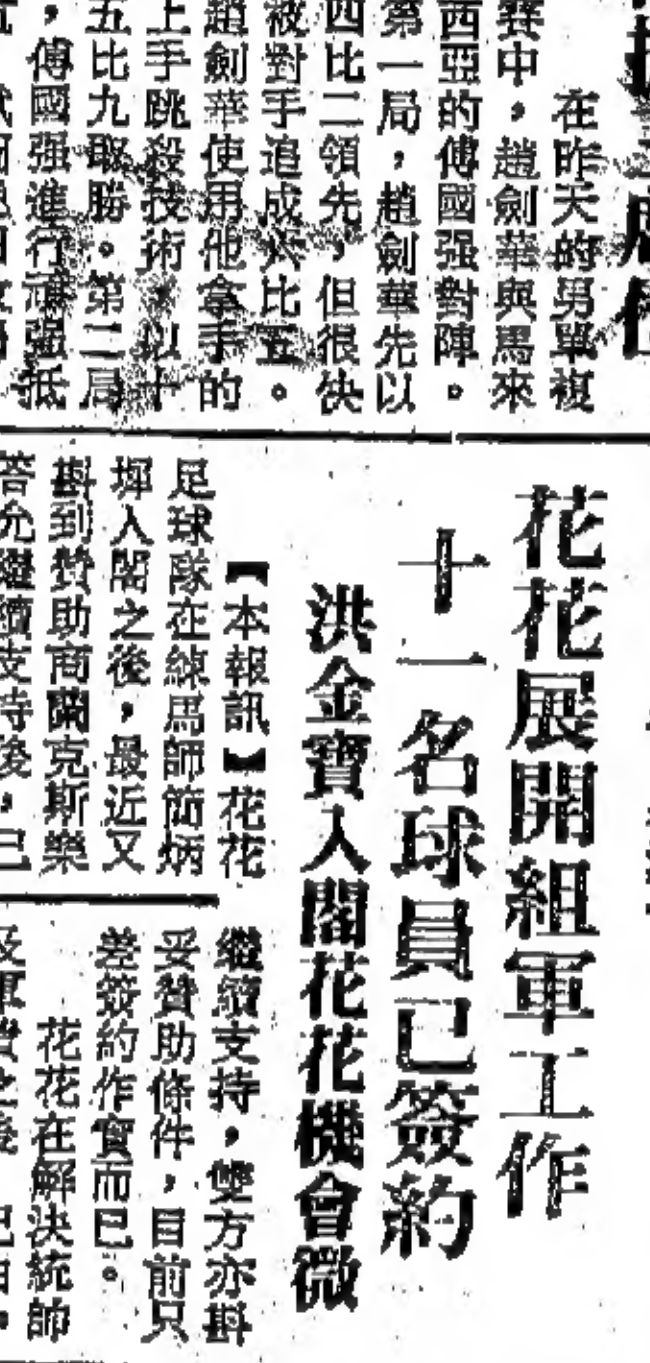 在昨天的男單複
賽中，趙劍華與馬來
西亞的傅國强對陣。
第一局，趙劍華先以
四比二領先，但很快
被對手追成六比五。
趙劍華使用他拿手的
上手跳殺技術，以十
五比九取勝。第二局
，傅國强進行頑强抵
花花展開組軍工作
十一名球員已簽約
洪金寶入閣花花機會微
【本報訊】花花
足球隊在練馬師簡炳
墀入閣之後，最近又
斟到贊助商蘭克斯樂
答允繼續支持後，已
繼續支持，雙方亦斟
妥贊助條件，目前只
差簽約作實而已。
花花在解決統帥